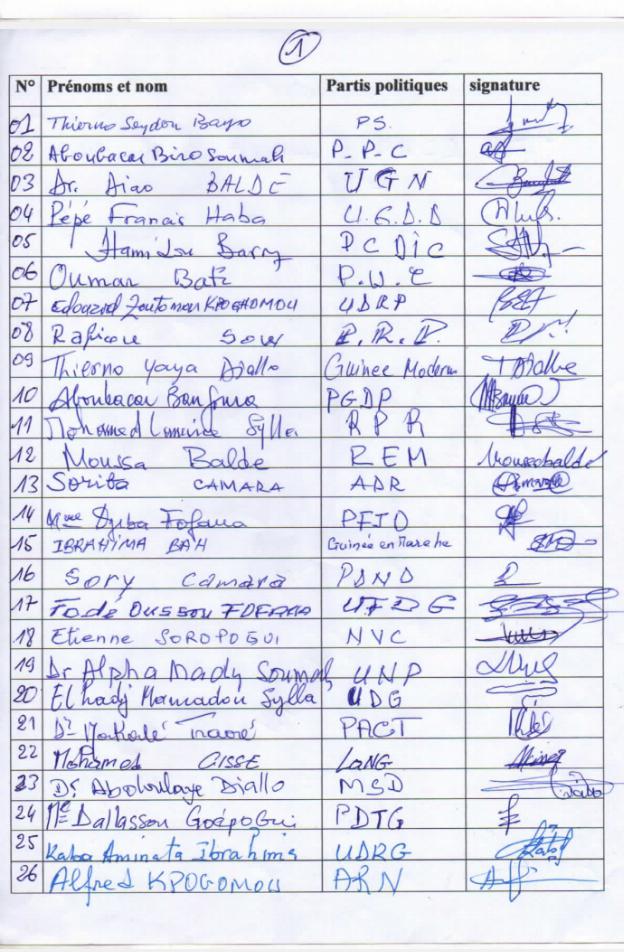 1
N° Prénoms et nom Partis politiques signature
01 Thierno Seydou Bayo PS.
02 Aboubacar Biro Soumah P-P-C
03 Dr. BALDE UGN
04 Pépé Francis Haba U.G.D.D
05 Hamidou Barry PCDIC
06 Oumar P.U.C
07 Edouard Zoutomou KPOGHOMOU UDRP
08 Rafiou SOW P.R.P.
09 Thierno Yaya Diallo Guinée Moderne TDiallo
10 Aboubacar Bangoura PGDP
11 Mohamed Lamine Sylla RPR
12 Moussa Balde REM Moussabaldé
13 Soriba CAMARA ADR
14 Mme Djiba Fofana
15 IBRAHIMA BAH Guinée en Marche
16 Sory Camara PDND
17 Fodé OUSSOU FOFANA UFDG
18 Etienne SOROPOGUI NVC
19 Dr Alpha Mady Soumah UNP
20 Elhadj Mamadou Sylla UDG
21 Dr Makalé Traoré PACT
22 Mohamed CISSE LaNG
23 Dr Abdoulaye Diallo MSD
24 Me Dallasson Goépogui PDTG
25 Kaba Aminata Ibrahima UDRG
26 Alfred KPOGOMOU ARN